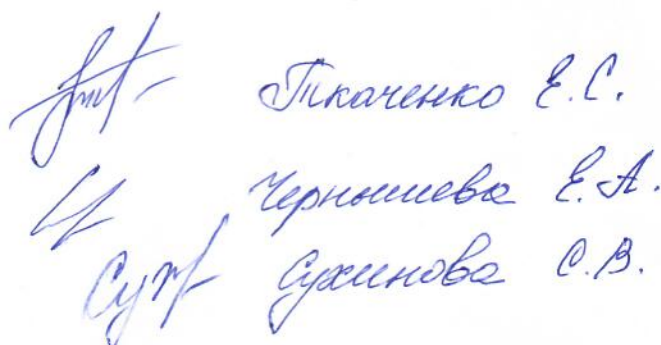 Ткаченко Е.С.
Чернышева Е.А.
Сухинова С.В.